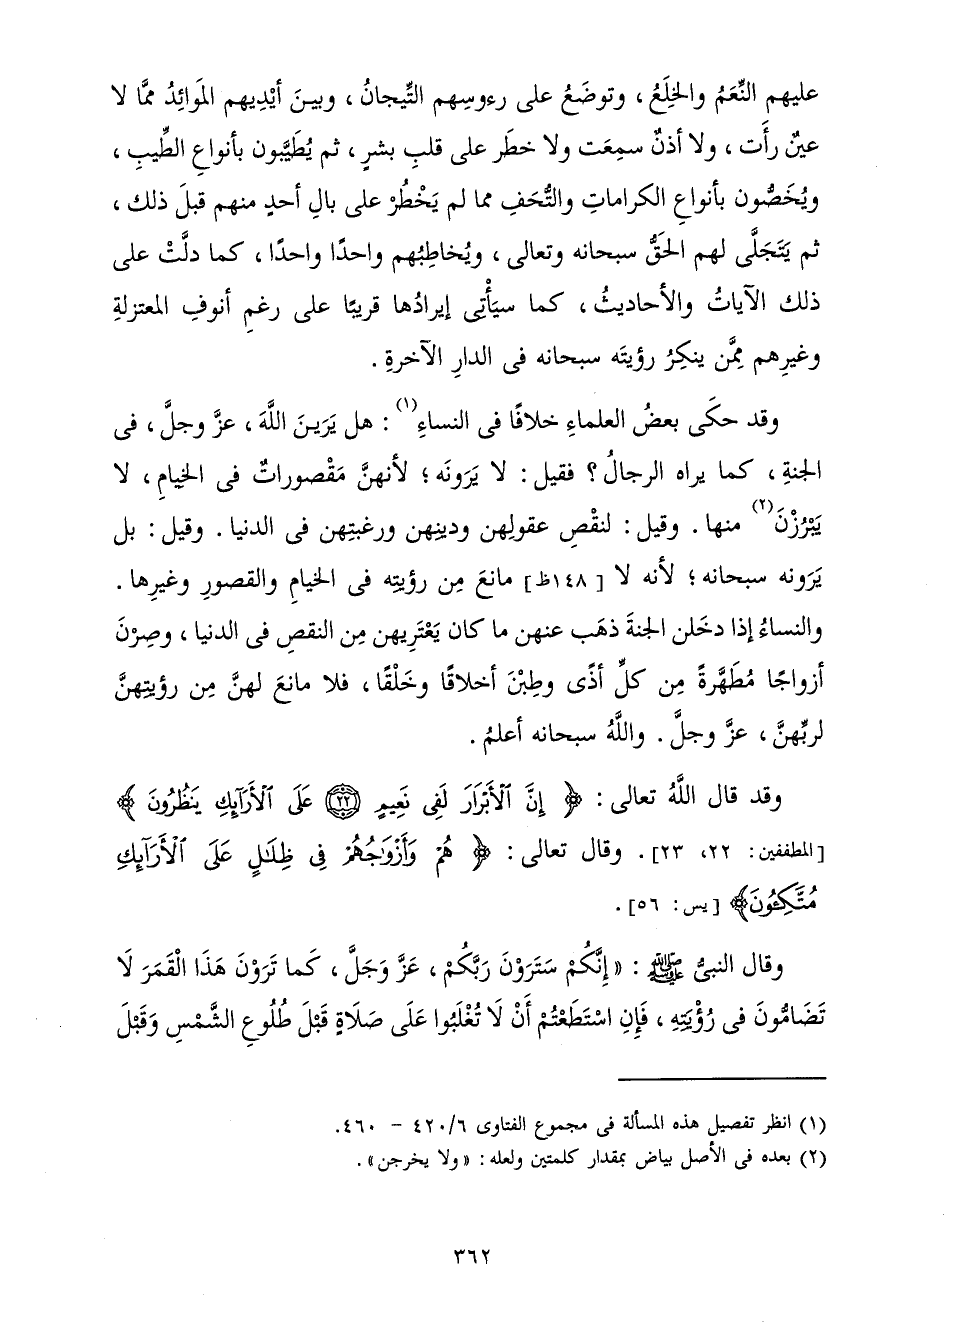 عليهم النَّعَمُ والخِلَعُ ، وتوضَعُ على رءوسِهم التِّيجانُ ، وبينَ أيْدِيهم المَوائِدُ ممَّا لا
عينٌ رأَت ، ولا أذنٌ سمِعَت ولا خطَر على قلبِ بشرٍ ، ثم يُطَيَّبون بأنواعِ الطِّيبِ ،
ويُخَصُّون بأنواعِ الكراماتِ والتُّحَفِ مما لم يَخْطُرْ على بالِ أحدٍ منهم قبلَ ذلك ،
ثم يَتَجَلَّى لهم الحَقُّ سبحانه وتعالى ، ويُخاطِبُهم واحدًا واحدًا ، كما دلَّتْ على
ذلك الآياتُ والأحاديثُ ، كما سيَأْتِى إيرادُها قريبًا على رغمِ أنوفِ المعتزلةِ
وغيرِهم مِمَّن ينكِرُ رؤيتَه سبحانه فى الدارِ الآخرةِ .
وقد حكَى بعضُ العلماءِ خلافًا فى النساءِ(١) : هل يَرَينَ اللَّهَ ، عزَّ وجلَّ ، فى
الجنةِ ، كما يراه الرجالُ ؟ فقيل : لا يَرَونَه ؛ لأنهنَّ مَقْصوراتٌ فى الخيامِ ، لا
يَبْرُزْنَ(٢) منها . وقيل : لنقْصِ عقولِهن ودينِهن ورغبتِهن فى الدنيا . وقيل : بل
يَرَونه سبحانه ؛ لأنه لا [ ١٤٨ظ ] مانعَ مِن رؤيتِه فى الخيامِ والقصورِ وغيرِها .
والنساءُ إذا دخَلن الجنةَ ذهَب عنهن ما كان يَعْتَرِيهن مِن النقصِ فى الدنيا ، وصِرْنَ
أزواجًا مُطَهَّرةً مِن كلِّ أذًى وطِبْنَ أخلاقًا وخَلْقًا ، فلا مانعَ لهنَّ مِن رؤيتِهنَّ
لربِّهنَّ ، عزَّ وجلَّ . واللَّهُ سبحانه أعلمُ .
وقد قال اللَّهُ تعالى : ﴿ إِنَّ ٱلْأَبْرَارَ لَفِى نَعِيمٍ ۝٢٢ عَلَى ٱلْأَرَآئِكِ يَنظُرُونَ ﴾
[المطففين : ٢٢، ٢٣] . وقال تعالى : ﴿ هُمْ وَأَزْوَٰجُهُمْ فِى ظِلَـٰلٍ عَلَى ٱلْأَرَآئِكِ
مُتَّكِـُٔونَ﴾ [يس : ٥٦] .
وقال النبىُّ ﷺ : « إِنَّكُمْ سَتَرَوْنَ رَبَّكُمْ ، عَزَّ وَجَلَّ ، كَما تَرَوْنَ هَذَا الْقَمَرَ لَا
تَضَامُّونَ فى رُؤْيَتِهِ ، فَإِنِ اسْتَطَعْتُمْ أَنْ لَا تُغْلَبُوا عَلَى صَلَاةٍ قَبْلَ طُلُوعِ الشَّمْسِ وَقَبْلَ
(١) انظر تفصيل هذه المسألة فى مجموع الفتاوى ٤٢٠/٦ - ٤٦٠.
(٢) بعده فى الأصل بياض بمقدار كلمتين ولعله : « ولا يخرجن » .
٣٦٢